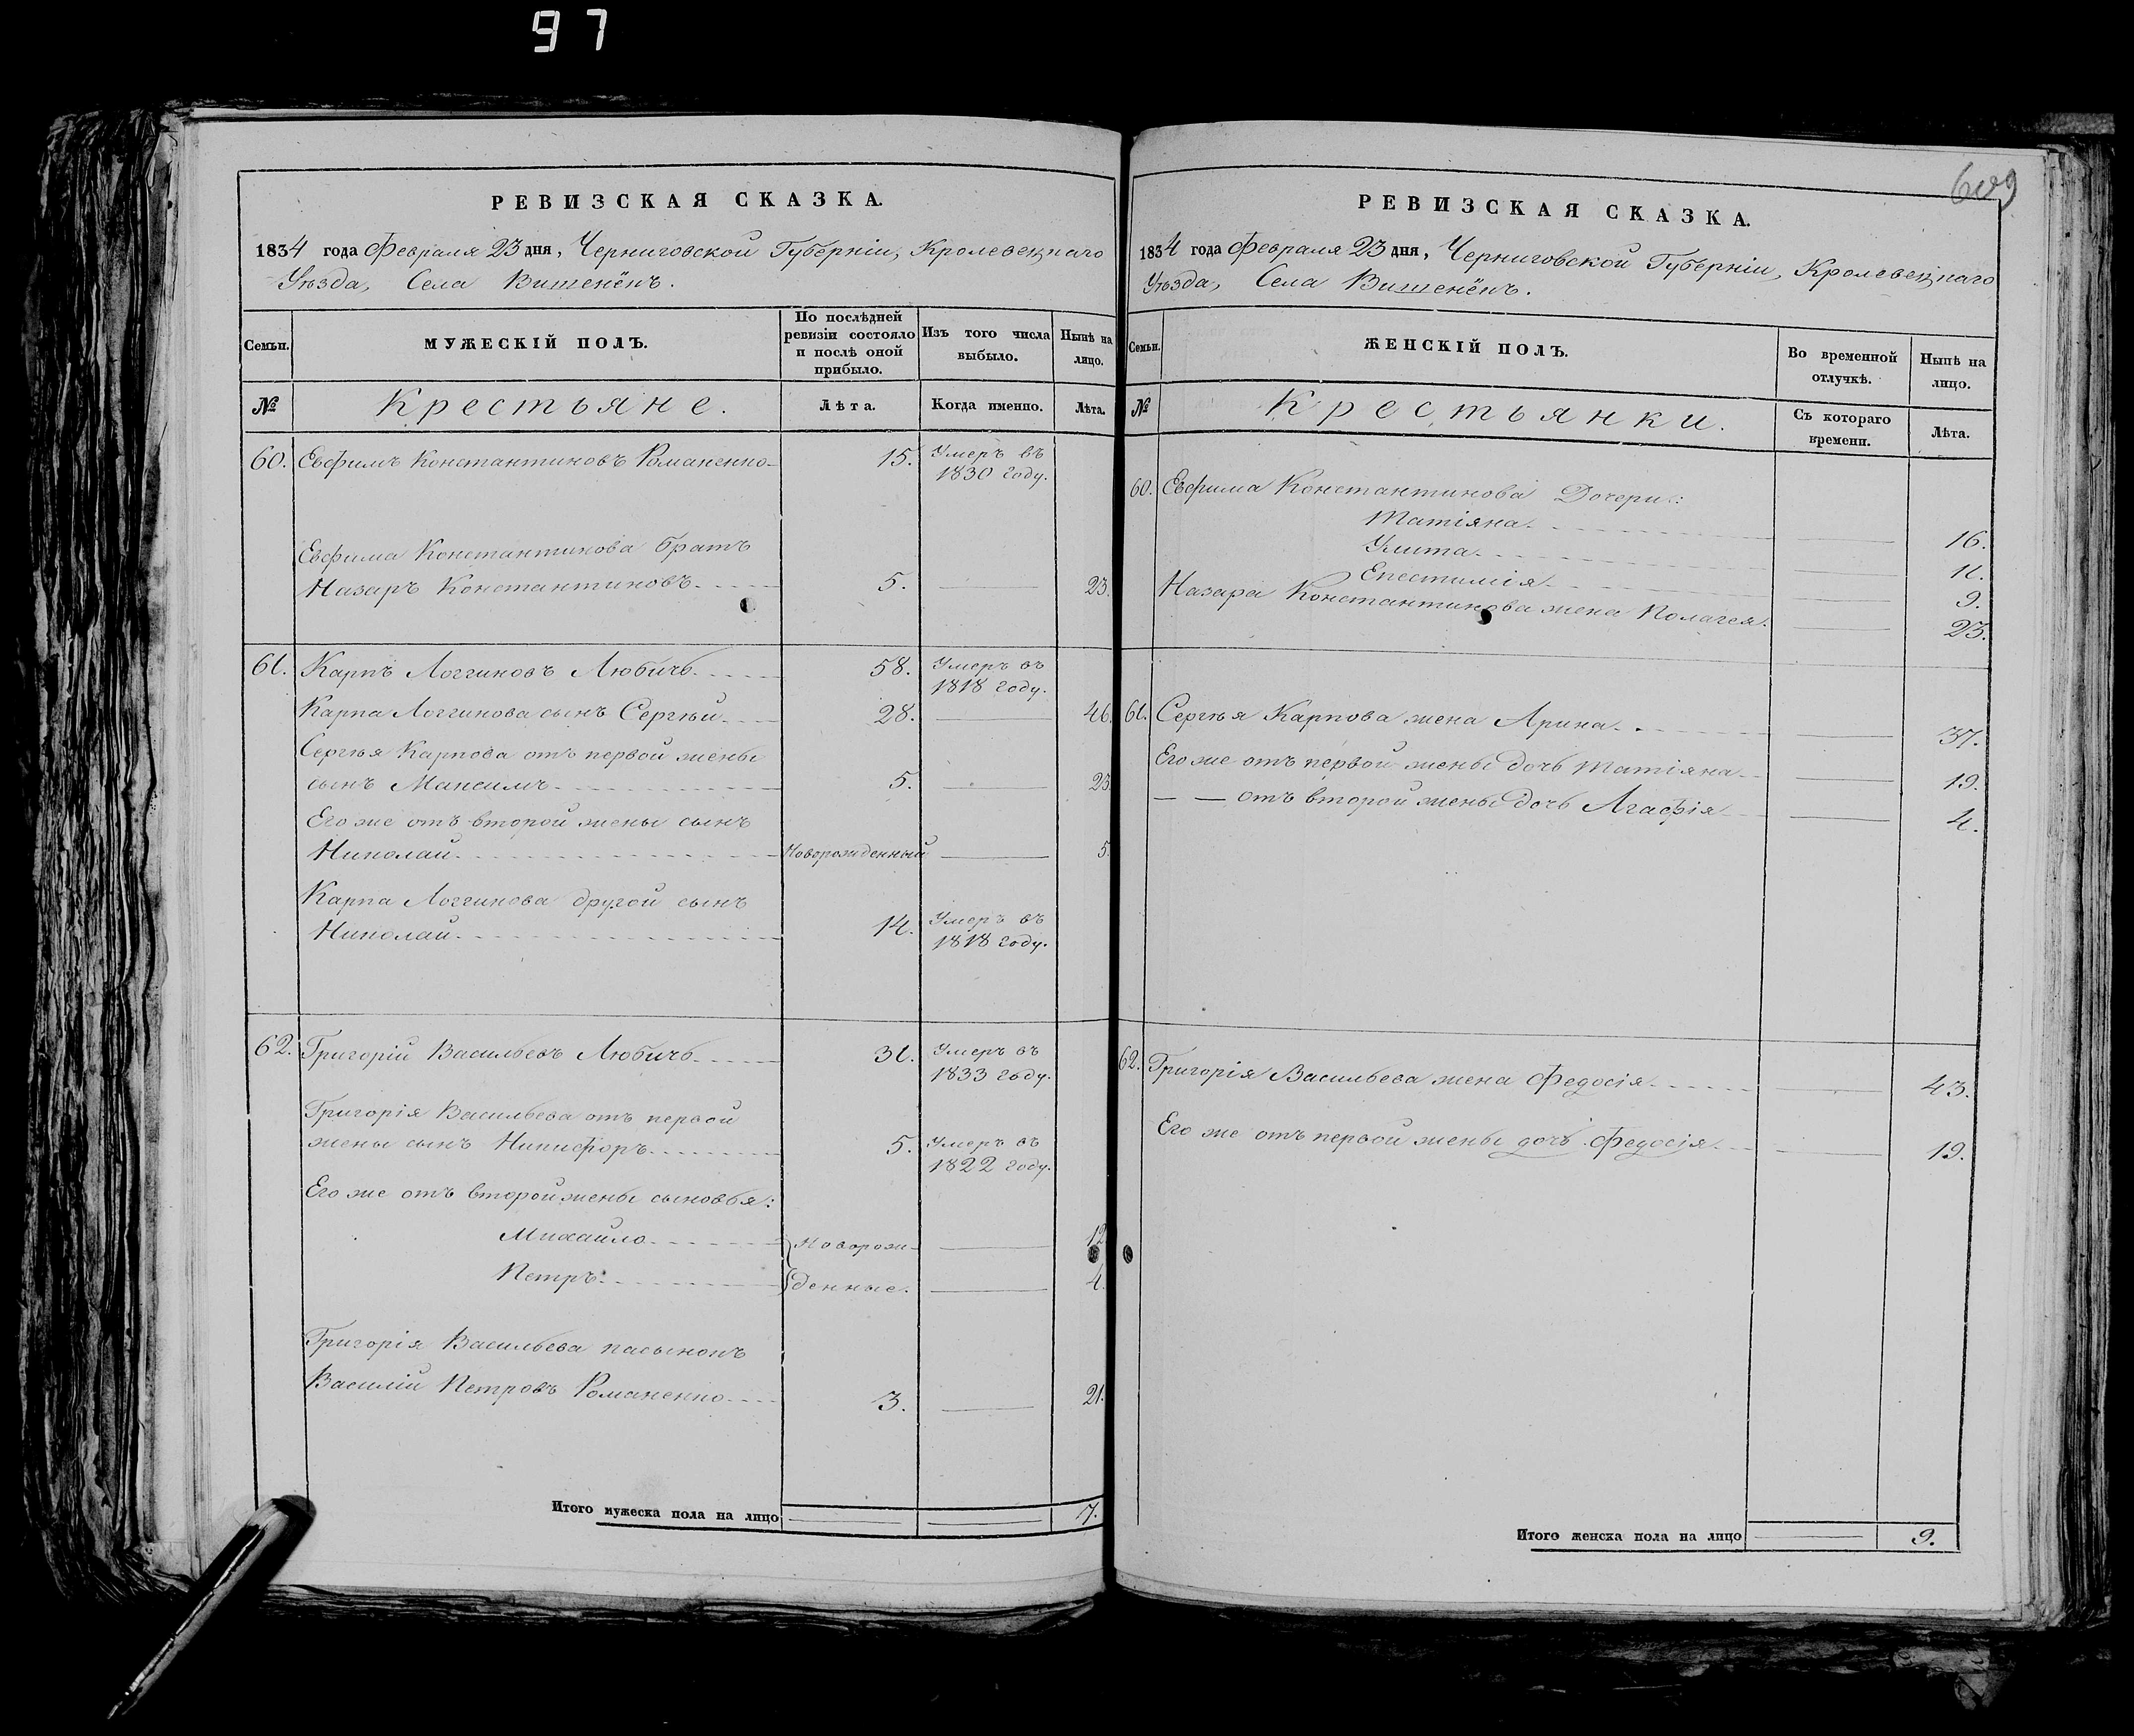 97
РЕВИЗСКАЯ СКАЗКА.
1834 года Февраля 23 дня, Черниговской Губерніи, Кролевецкаго
Уѣзда, Села Вишенёкъ.
Семьи.
МУЖЕСКІЙ ПОЛЪ.
По послѣдней
ревизіи состояло
и послѣ оной
прибыло.
Изъ того числа
выбыло.
Нынѣ на
лицо.
№ Крестьяне. Лѣта. Когда именно. Лѣта.
60. Евфимъ Константиновъ Романенко 15. Умеръ въ
1830 году.
Евфима Константинова братъ
Назаръ Константиновъ 5. 23.
61. Карпъ Логгиновъ Любичъ 58. Умеръ въ
1818 году.
Карпа Логгинова сынъ Сергѣй 28. 46.
Сергѣя Карпова отъ первой жены
сынъ Максимъ 5. 23.
Его же отъ второй жены сынъ
Николай Новорожденный 5.
Карпа Логгинова другой сынъ
Николай 14. Умеръ въ
1818 году.
62. Григорій Васильевъ Любичъ 31. Умеръ въ
1833 году.
Григорія Васильева отъ первой
жены сынъ Никифоръ 5. Умеръ въ
1822 году.
Его же отъ второй жены сыновья:
Михайло Новорож- 12
Петръ денные. 4.
Григорія Васильева пасынокъ
Василій Петровъ Романенко 3. 21.
Итого мужеска пола на лицо 7.
РЕВИЗСКАЯ СКАЗКА.
1834 года Февраля 23 дня, Черниговской Губерніи, Кролевецкаго
Уѣзда, Села Вишенёкъ.
Семьи.
ЖЕНСКІЙ ПОЛЪ.
Во временной
отлучкѣ.
Нынѣ на
лицо.
№ Крестьянки. Съ котораго
времени. Лѣта.
60. Евфима Константинова Дочери:
Татіяна 16.
Улита 11.
Епестимія 9.
Назара Константинова жена Полагея. 23.
61. Сергѣя Карпова жена Арина 37.
Его же отъ первой жены дочь Татіяна 19.
— — отъ второй жены дочь Агафія 4.
62. Григорія Васильева жена Федосія 43.
Его же отъ первой жены дочь Федосія 19.
Итого женска пола на лицо 9.